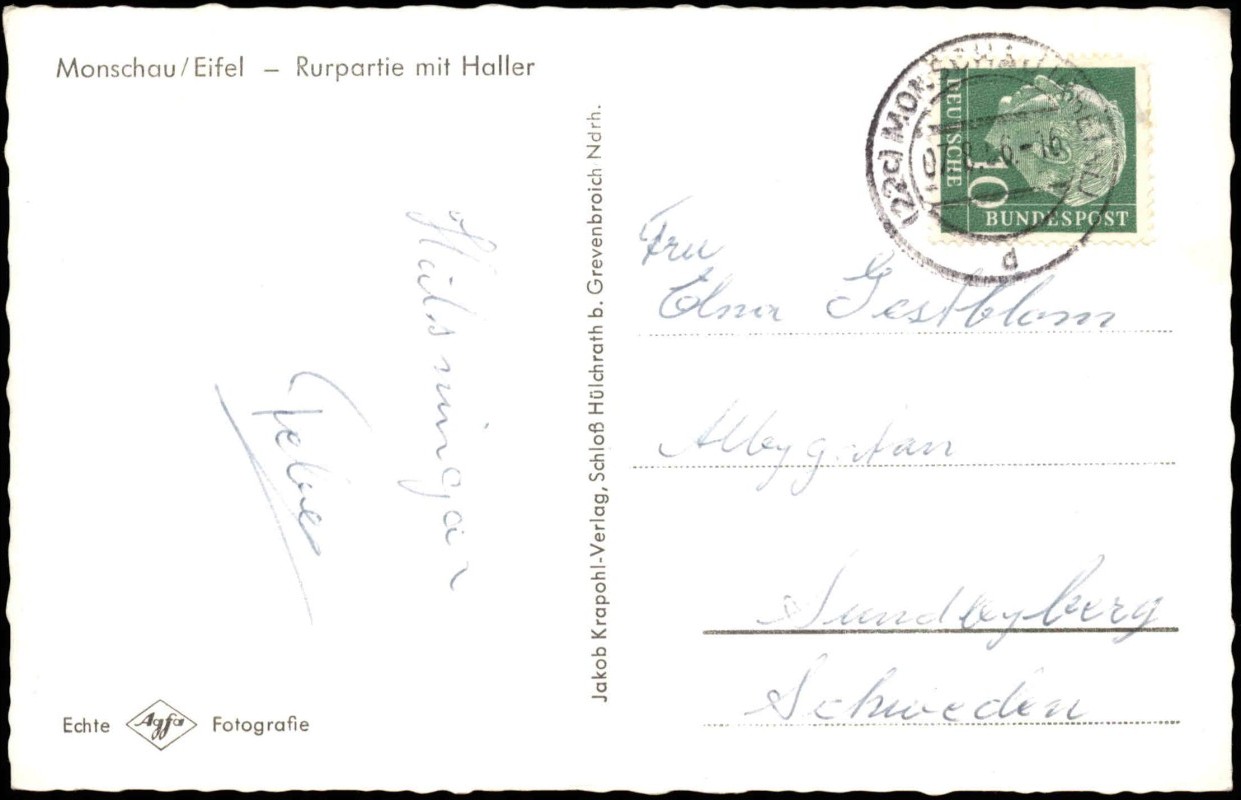 Monschau/Eifel – Rurpartie mit Haller
Hälsningar
Jakob Krapohl-Verlag, Schloß Hülchrath b. Grevenbroich Ndrh.
DEUTSCHE
10
BUNDESPOST
(22c) MONSCHAU
d
Fru
Elna Gestblom
Albygatan
Sundbyberg
Schweden
Echte Agfa Fotografie